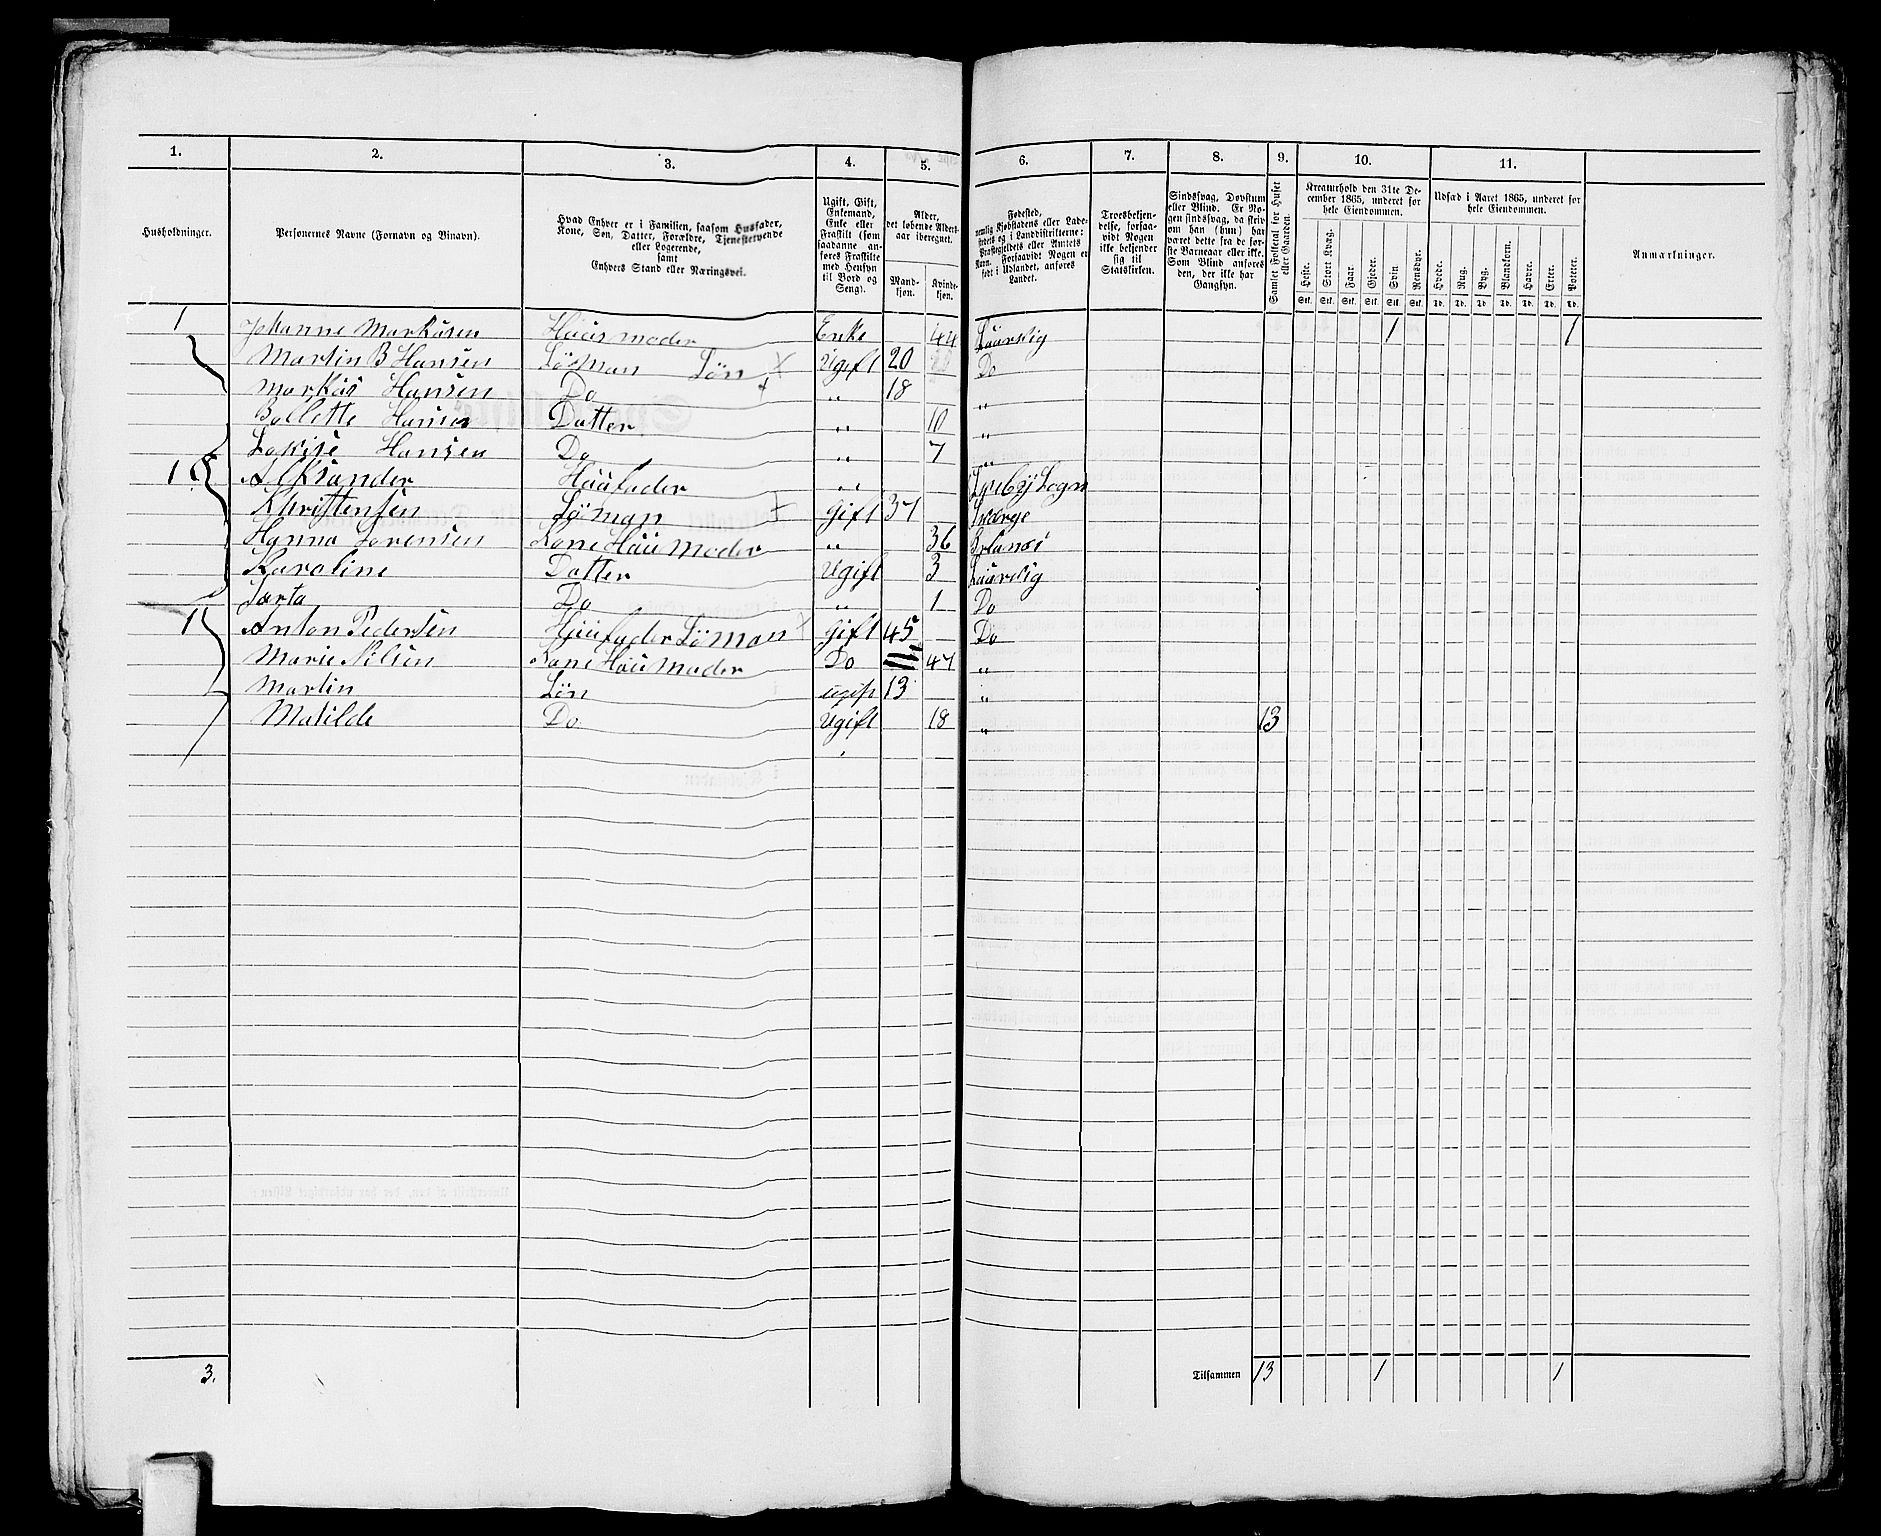 1. 2. 3. 4. 5. 6. 7. 8. 9. 10. 11.
Husholdninger.
Personernes Navne (Fornavn og Binavn).
Hvad Enhver er i Familien, saasom Husfader,
Kone, Søn, Datter, Forældre, Tjenestetyende
eller Logerende,
samt
Enhvers Stand eller Næringsvei.
Ugift, Gift,
Enkemand,
Enke eller
Fraskilt (som
saadanne an-
føres Fraskilte
med Hensyn
til Bord og
Seng).
Alder,
det løbende Alders-
aar iberegnet.
Mand-
kjøn.
Kvinde-
kjøn.
Fødested,
nemlig Kjøbstadens eller Lade-
stedets og i Landdistrikterne:
Præstegjeldets eller Amtets
Navn. Forsaavidt Nogen er
født i Udlandet, anføres
Landet.
Troesbekjen-
delse, forsaa-
vidt Nogen
ikke bekjender
sig til
Statskirken.
Sindssvag, Døvstum
eller Blind. Er No-
gen sindssvag, da skriv
om han (hun) har
været dette fra de før-
ste Barneaar eller ikke.
Som Blind anføres
den, der ikke har
Gangsyn.
Samlet Folketal for Huset
eller Gaarden.
Kreaturhold den 31te De-
cember 1865, underet for
hele Eiendommen.
Heste. Stort Kvæg. Faar. Gjeder. Svin. Rensdyr.
Stk. Stk. Stk. Stk. Stk. Stk.
Udsæd i Aaret 1865, underet for
hele Eiendommen.
Hvede. Rug. Byg. Blandkorn. Havre. Erter. Poteter.
Td. Td. Td. Td. Td. Td. Td.
Anmærkninger.
1 Johanne Markusen Huus moder Enke 44 Laurvig 1 1
Martin B Hansen Søman Søn Ugift 20 Do
Markus Hansen Do " 18 "
Bollette Hansen Datter " 10 "
Lovise Hansen Do " 7 "
1 Alksander Huufader " Lyseby Sogn
Khristensen Søman Gift 37 Sverge
Hanna Sorensen Kone Huu Moder " 36
Karoline Datter Ugift 3 Laurvig
Sarta Do " 1 Do
1 Anton Pedersen Huufader Søman Gift 45 Do
Marie Nilsen Kone Huu Moder Do 47 "
Martin Søn ugift 13 "
Matilde Do Ugift 18 " 13
3. Tilsammen 13 1 1